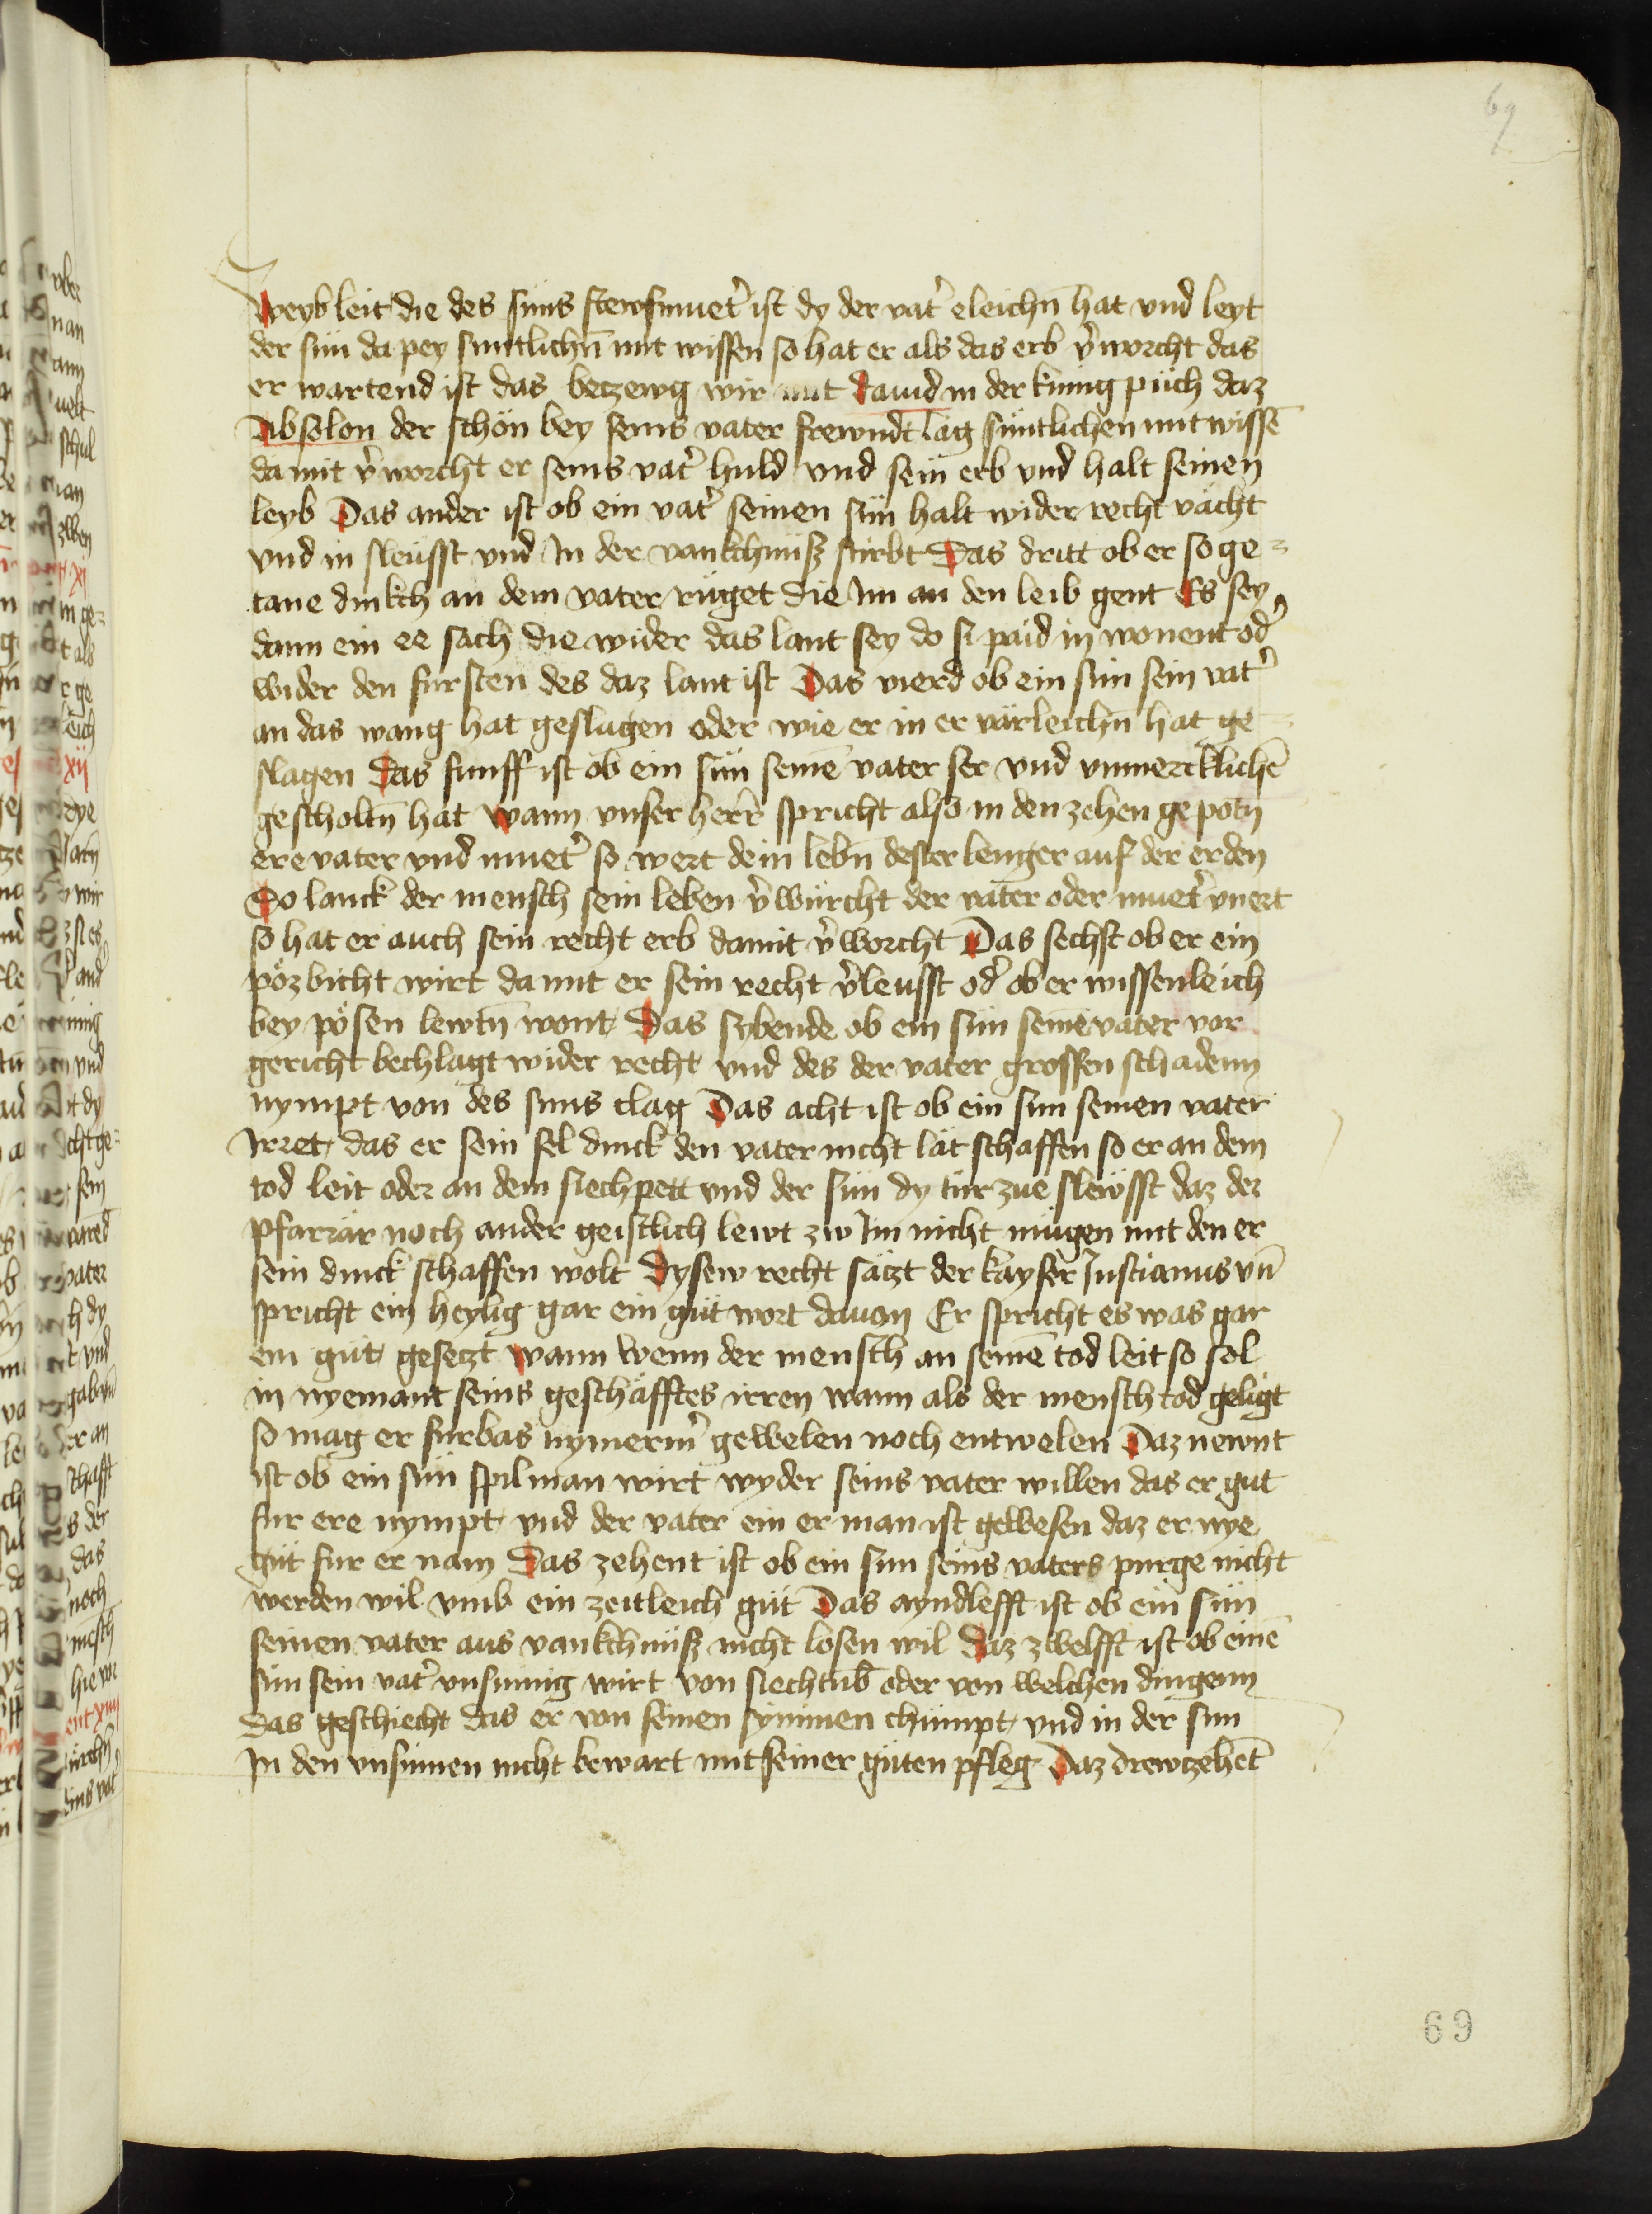 69
weyb leit die des suns stewfmuet̉ ist dy der vat̉ eleichn̄ hat vnd leyt
der sün da pey suntlichn̄ mit wissen so hat er als das erb v̉worcht das
er wartend ist das betzewg wir mit dauid in der kunig püch daz
Absolon der schön bey seins vater frewndt lag süntlichen mit wissē
da mit v̉worcht er seins vat̉ huld vnd sein erb vnd halt seinen
leyb Das ander ist ob ein vat̉ seinen sün halt wider recht vächt
vnd in sleüsst vnd In der vankchnüsz stirbt Das dritt ob er so ge=
tane dinkch an dem vater rüget die Im an den leib gent Es sey
dann ein ee sach die wider das lant sey do si paid in wonent od̉
wider den fursten des daz lant ist Das vierd ob ein sün sein vat̉
an das wang hat geslagen oder wie er in er värleichn̄ hat ge=
slagen Das funff ist ob ein sün seinē vater ser vnd vnmercklichē
gescholtn̄ hat wann vnser herr spricht also in den zehen gepotn̄
ere vater vnd muet̉ so wert dein lebn̄ dester lenger auf der erden
So lanck der mensch sein leben v̉würcht der vater oder muet̉ vnert
so hat er auch sein recht erb damit v̉worcht Das sechst ob er ein
pözbicht wirt da mit er sein recht v̉leusst od̉ ob er wissenleich
bey pösen lewtn̄ wont Das sybende ob ein sün seinē vater vor
gericht bechlagt wider recht vnd des der vater grossen schadenn
nympt von des suns clag Das acht ist ob ein sun seinen vater
Irret das er sein sel dinck den vater nicht lät schaffen so er an dem
tod leit oder an dem siechpett vnd der sün dy tür zue slewsst daz der
pfarrär noch ander geistlich lewt zw Im nicht mügen mit den er
sein dinck schaffen wolt Dysew recht sätzt der kayser Justianus vn̄
spricht ein heylig gar ein güt wort dauon Er spricht es was gar
ein güt gesetzt wann wenn der mensch an seinē tod leit so sol
in nyemant seins geschäfftes irren wann als der mensch tod geligt
so mag er fürbas nymerm̉ gewelen noch entwelen Daz newnt
ist ob ein sün spilman wirt wyder seins vater willen das er gut
fur ere nympt vnd der vater ein er man ist gewesen daz er nye
güt fur er nam Das zehent ist ob ein sun seins vaters purge nicht
werden wil vmb ein zeitleich güt Das ayndlefft ist ob ein sün
seinen vater aus vankchnüsz nicht losen wil Daz zwelfft ist ob einē
sün sein vat̉ vnsinnig wirt von siechtūb oder von welchen dingenn
das geschiecht das er von seinen synnen chümpt vnd in der sun
In den vnsinnen nicht bewart mit seiner güten pfleg Daz drewtzehēt
69